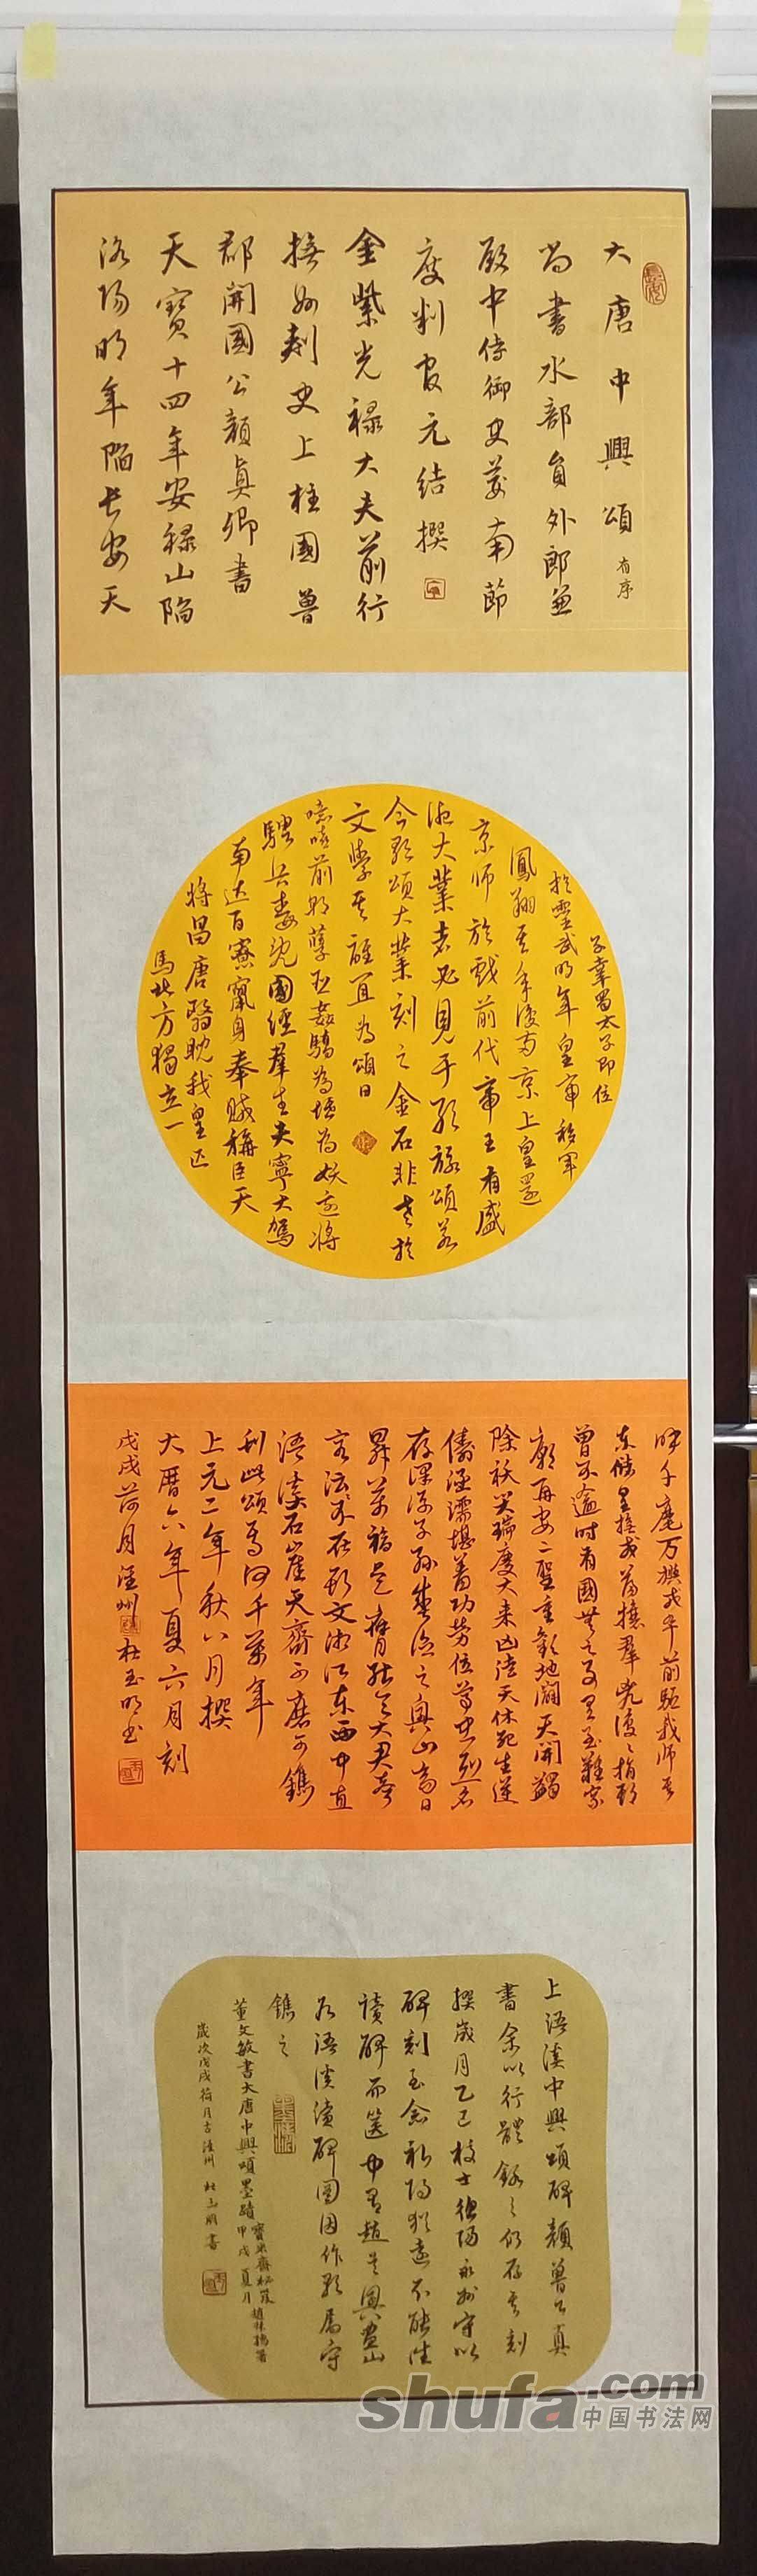 大唐中興頌有序
尚書水部員外郎兼
殿中侍御史荊南節
度判官元結撰
金紫光祿大夫前行
撫州刺史上柱國魯
郡開國公顏真卿書
天寶十四年安祿山陷
洛陽明年陷長安天
子幸蜀太子即位
於靈武明年皇帝移軍
鳳翔其年復兩京上皇還
京師於戲前代帝王有盛
德大業者必見于歌頌若
今歌頌大業刻之金石非老於
文學其誰宜為頌曰
噫嘻前朝孽臣姦驕為惛為妖邊將
騁兵毒亂國經羣生失寧大駕
南巡百寮竄身奉賊稱臣天
將昌唐繄睨我皇匹
馬北方獨立一
呼千麾萬旟戎卒前驅我師其
東儲皇撫戎蕩攘羣兇復復指期
曾不逾時有國無之事有至難宗
廟再安二聖重歡地闢天開蠲
除祅災瑞慶大來凶徒逆
儔涵濡天休死生堪羞功勞位尊忠烈名
存澤流子孫盛德之興山高日
昇萬福是膺能令大君聲
容沄沄不在斯文湘江東西中直
浯溪石崖天齊可磨可鐫
刊此頌焉何千萬年
上元二年秋八月撰
大曆六年夏六月刻
戊戌荷月涇州杜玉明書
上浯溪中興頌碑顏魯公真
書余以行體
撰歲月乙巳
碑刻至
讀碑而
為浯溪讀碑圖因作歌屬守
鐫之
董文敏書大唐中興頌墨蹟
甲戌夏月
歲次戊戌荷月古涇州杜玉明書
shufa.com
中国书法网